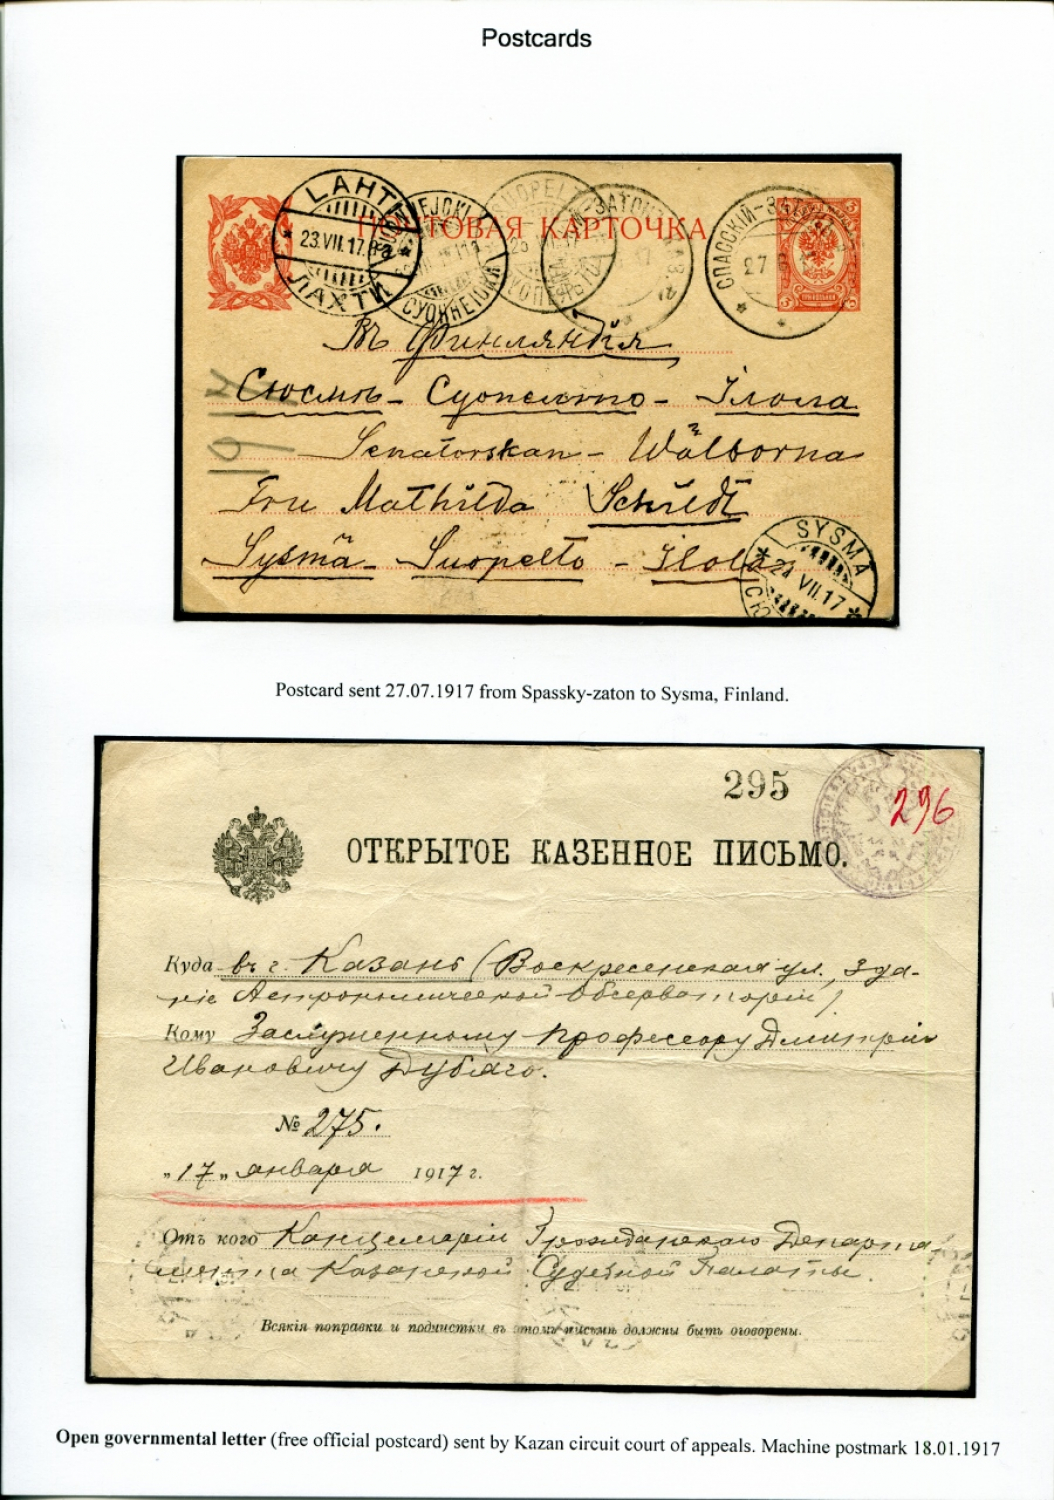 Postcards
ПОЧТОВАЯ КАРТОЧКА
LAHTI
23.VII.17.
ЛАХТИ
СПАССКІЙ-ЗАТО
27
Въ Финляндія
Сюсмя - Суопельто - Ілола
Senatorskan - Wälborna
Fru Mathilda Schildt
Sysmä - Suopelto - Ilola
SYSMÄ
VII.17
Postcard sent 27.07.1917 from Spassky-zaton to Sysma, Finland.
295
296
ОТКРЫТОЕ КАЗЕННОЕ ПИСЬМО.
Куда въ г. Казань (Воскресенская ул., зда-
ніе Астрономической Обсерваторіи)
Кому Заслуженному профессору Дмитрію
Ивановичу Дубяго.
№ 275.
„17„ января 1917 г.
Отъ кого Канцеляріи Гражданскаго Департа-
мента Казанской Судебной Палаты.
Всякія поправки и подчистки въ этомъ письмѣ должны быть оговорены.
Open governmental letter (free official postcard) sent by Kazan circuit court of appeals. Machine postmark 18.01.1917